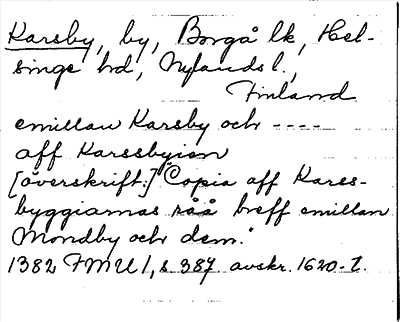 Karsby, by, Borgå lk, Hel-
singe hd, Nylands l.,
Finland
emillan Karsby och ----
aff Karssbyian
[överskrift:] "Copia aff Karss-
byggiarnas råå breff emillan
Mondby och dem."
1382 FMU 1, s. 387 avskr. 1620-t.